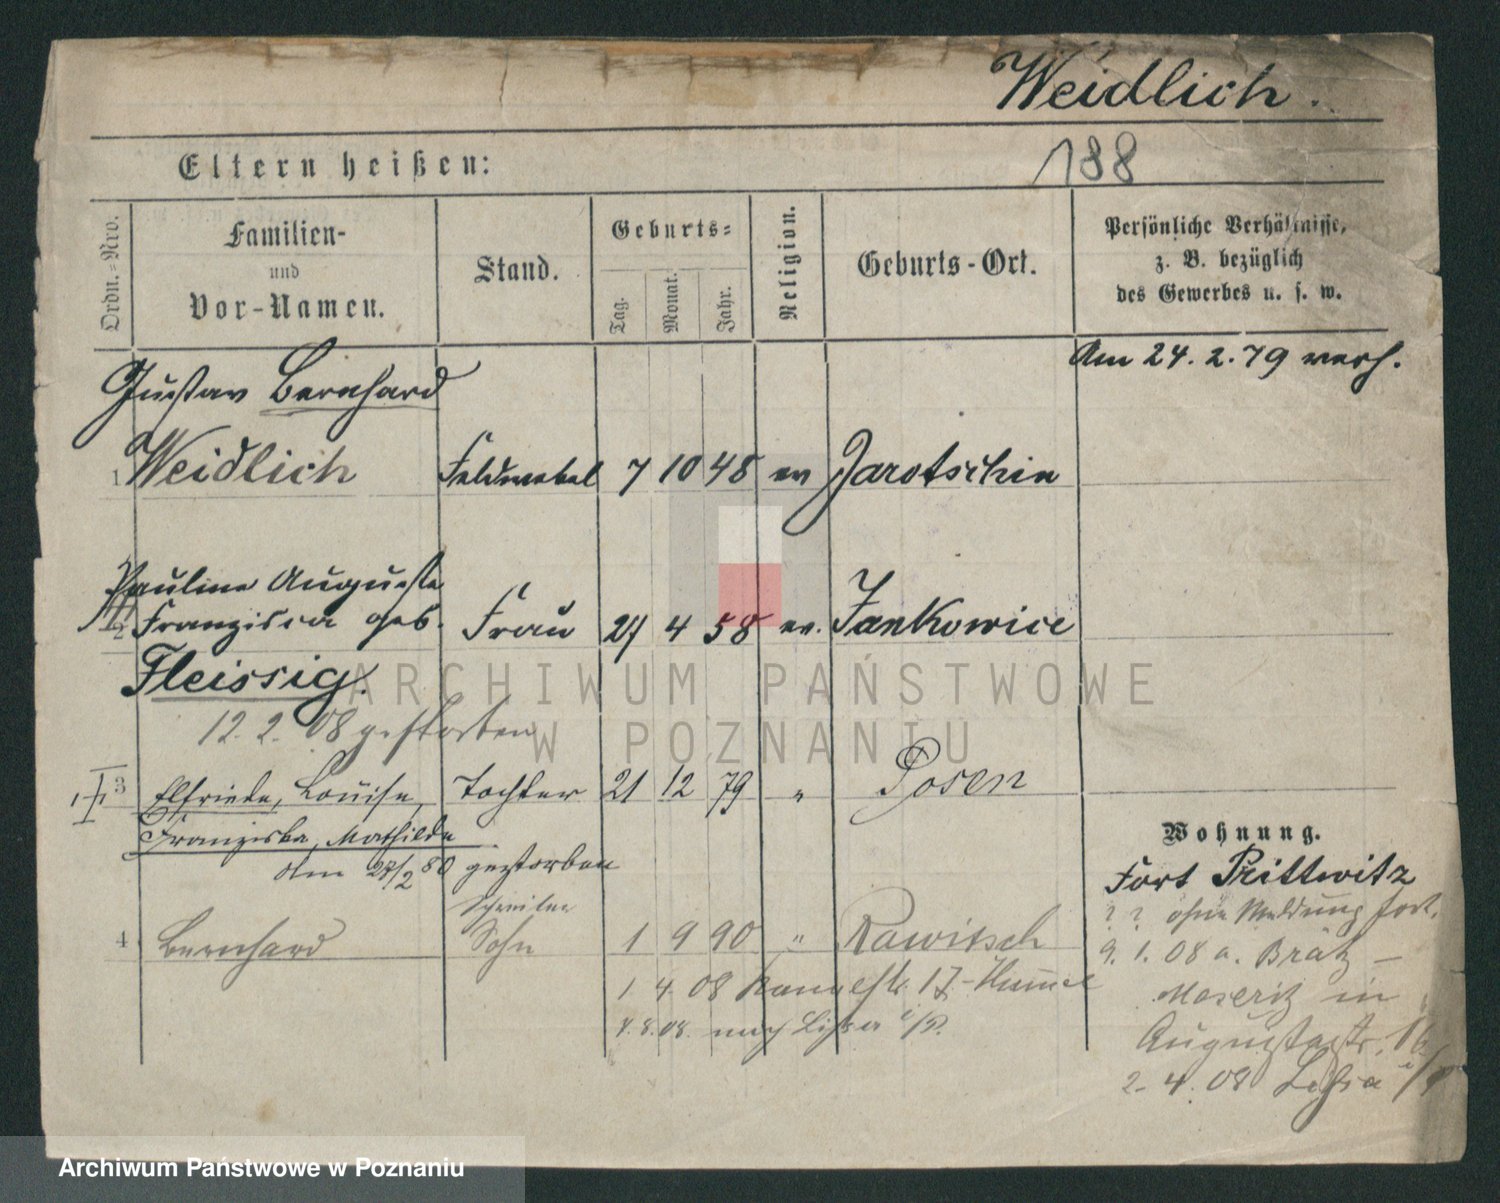 Weidlich.
188
Eltern heißen:
Ordn.=Nro.
Familien-
und
Vor-Namen.
Stand.
Geburts=
Tag.
Monat.
Jahr.
Religion.
Geburts-Ort.
Persönliche Verhältnisse,
z. B. bezüglich
des Gewerbes u. s. w.
Am 24. 2. 79 verh.
Gustav Bernhard
1 Weidlich Feldwebel 7 10 48 ev Jarotschin
Pauline Auguste
2 Franzisca geb. Frau 27 4 58 ev. Jankowice
Fleissig.
12. 2. 08 gestorben
3 Elfriede, Louise, Tochter 21 12 79 " Posen
Franziska, Mathilde
am 27/2 80 gestorben
Wohnung.
Fort Prittwitz
? ? ohne Meldung fort.
Schreiber
4 Bernhard Sohn 1 9 90 " Rawitsch
9. 1. 08 a. Brätz –
Meseritz in
1 4 08
8.08. nach Lissa i/P.
Augustastr. 16
2. 4. 08 Lissa i/P
ARCHIWUM PAŃSTWOWE
W POZNANIU
Archiwum Państwowe w Poznaniu